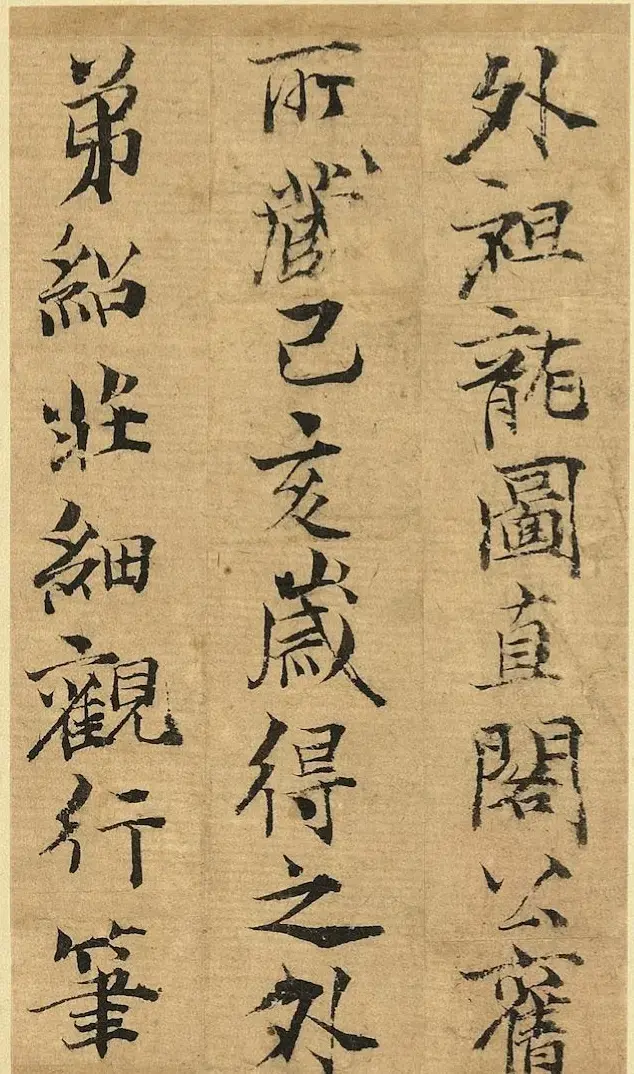 外祖龍圖直閣公舊
所藏己亥歲得之外
弟紹莊細觀行筆